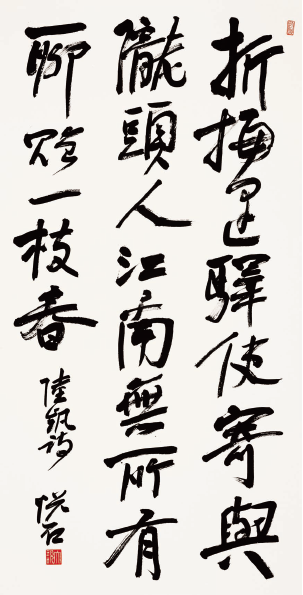 折梅逢驛使寄與
隴頭人江南無所有
聊贈一枝春
陸凱詩 悅石